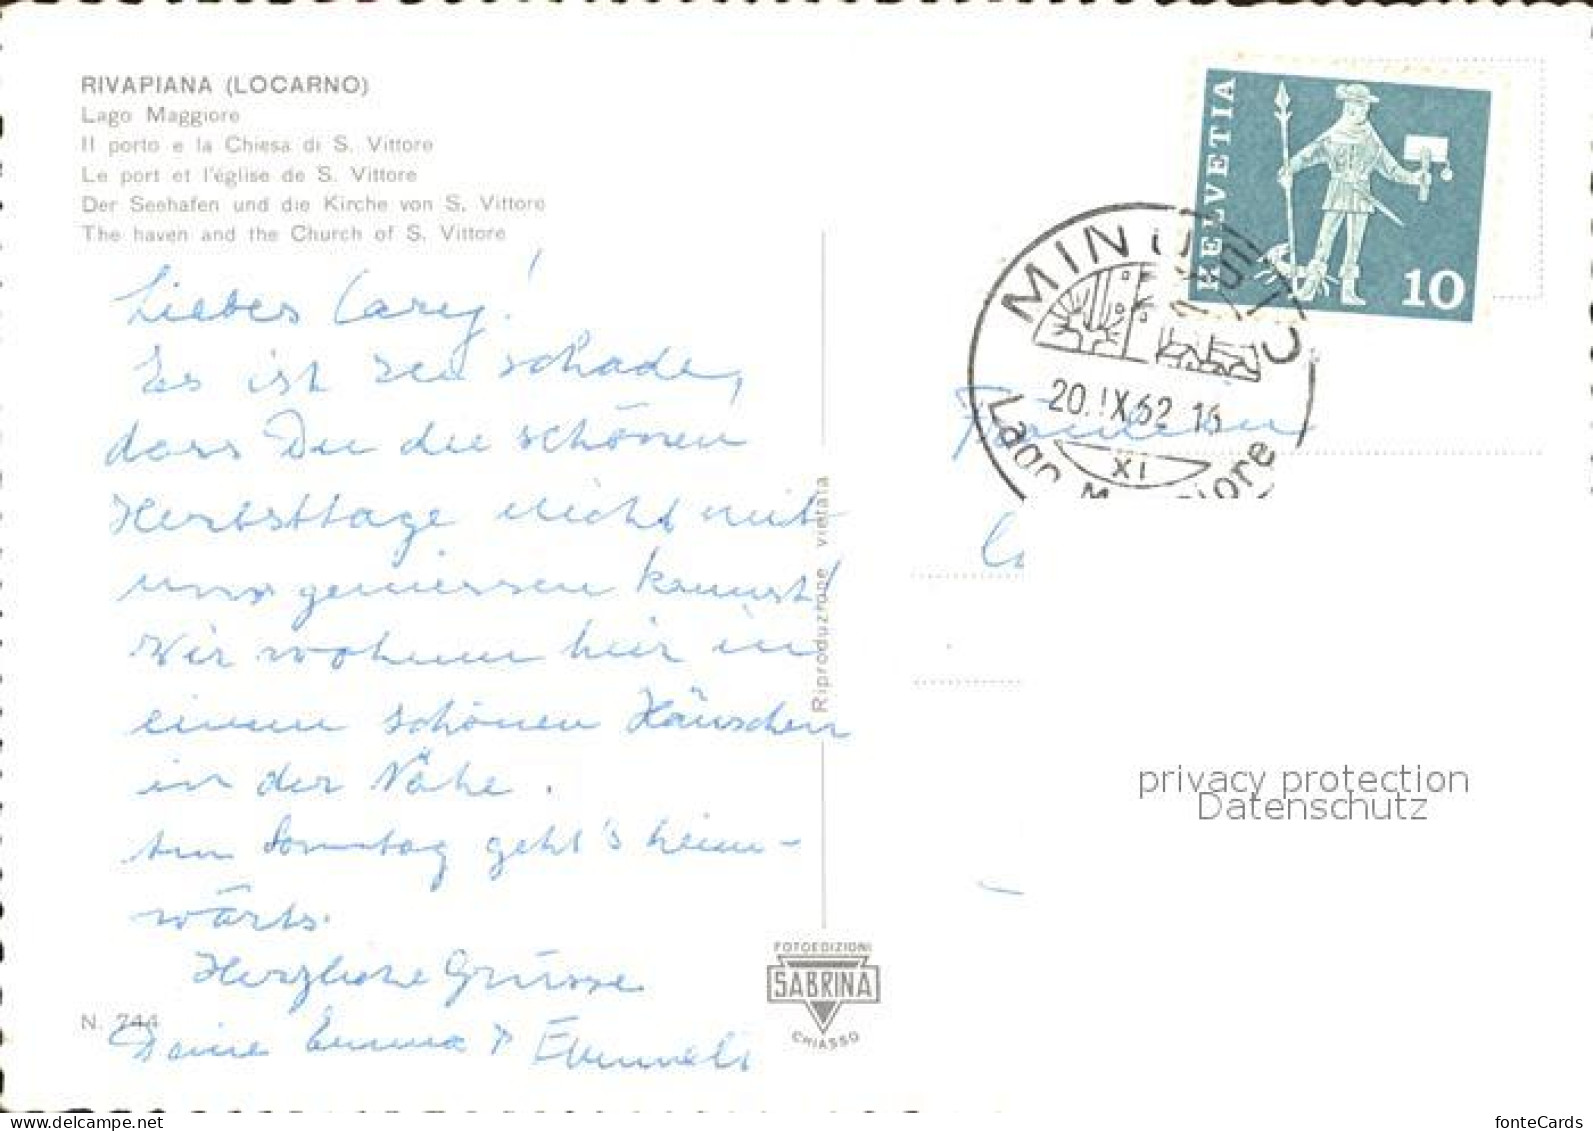 RIVAPIANA (LOCARNO)
Lago Maggiore
Il porto e la Chiesa di S. Vittore
Le port et l'église de S. Vittore
Der Seehafen und die Kirche von S. Vittore
The haven and the Church of S. Vittore
Liebes Carey!
Es ist zu schade,
dass Du die schönen
Herbsttage nicht mit
uns geniessen kannst!
Wir wohnen hier in
einem schönen Häuschen
in der Nähe.
Am Sonntag geht's heim-
wärts.
Herzliche Grüsse
Deine Emma &
N. 744
Riproduzione vietata
FOTOEDIZIONI
SABRINA
CHIASSO
HELVETIA
10
MINUSIO
20.IX.62.16
XI
Lago Maggiore
Fräulein
privacy protection
Datenschutz
www.delcampe.net
fonteCards